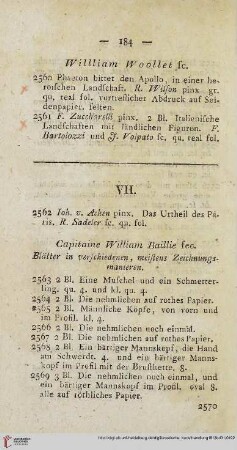 — 184 —
Willliam Woollet sc.
2560 Phaeton bittet den Apollo, in einer he-
roischen Landschaft. R. Wilson pinx. gr.
qu. real fol. vortreflicher Abdruck auf Sei-
denpapier, selten.
2561 F. Zuccharelli pinx. 2 Bl. Italienische
Landschaften mit ländlichen Figuren. F.
Bartolozzi und J. Volpato sc. qu. real fol.
VII.
2562 Joh. v. Achen pinx. Das Urtheil des Pa-
ris. R. Sadeler sc. qu. fol.
Capitaine William Baillie fec.
Blätter in verschiedenen, meistens Zeichnungs-
manieren.
2563 2 Bl. Eine Muschel und ein Schmetter-
ling. qu. 4. und kl. qu. 4.
2564 2 Bl. Die nehmlichen auf rothes Papier.
2565 2 Bl. Männliche Köpfe, von vorn und
im Profil. kl. 4.
2566 2 Bl. Die nehmlichen noch einmal.
2567 2 Bl. Die nehmlichen auf rothes Papier.
2568 2 Bl. Ein bärtiger Mannskopf, die Hand
am Schwerdt. 4. und ein bärtiger Manns-
kopf im Profil mit der Brustkette. 8.
2569 3 Bl. Die nehmlichen noch einmal, und
ein bärtiger Mannskopf im Profil. oval 8.
alle auf röthliches Papier.
2570